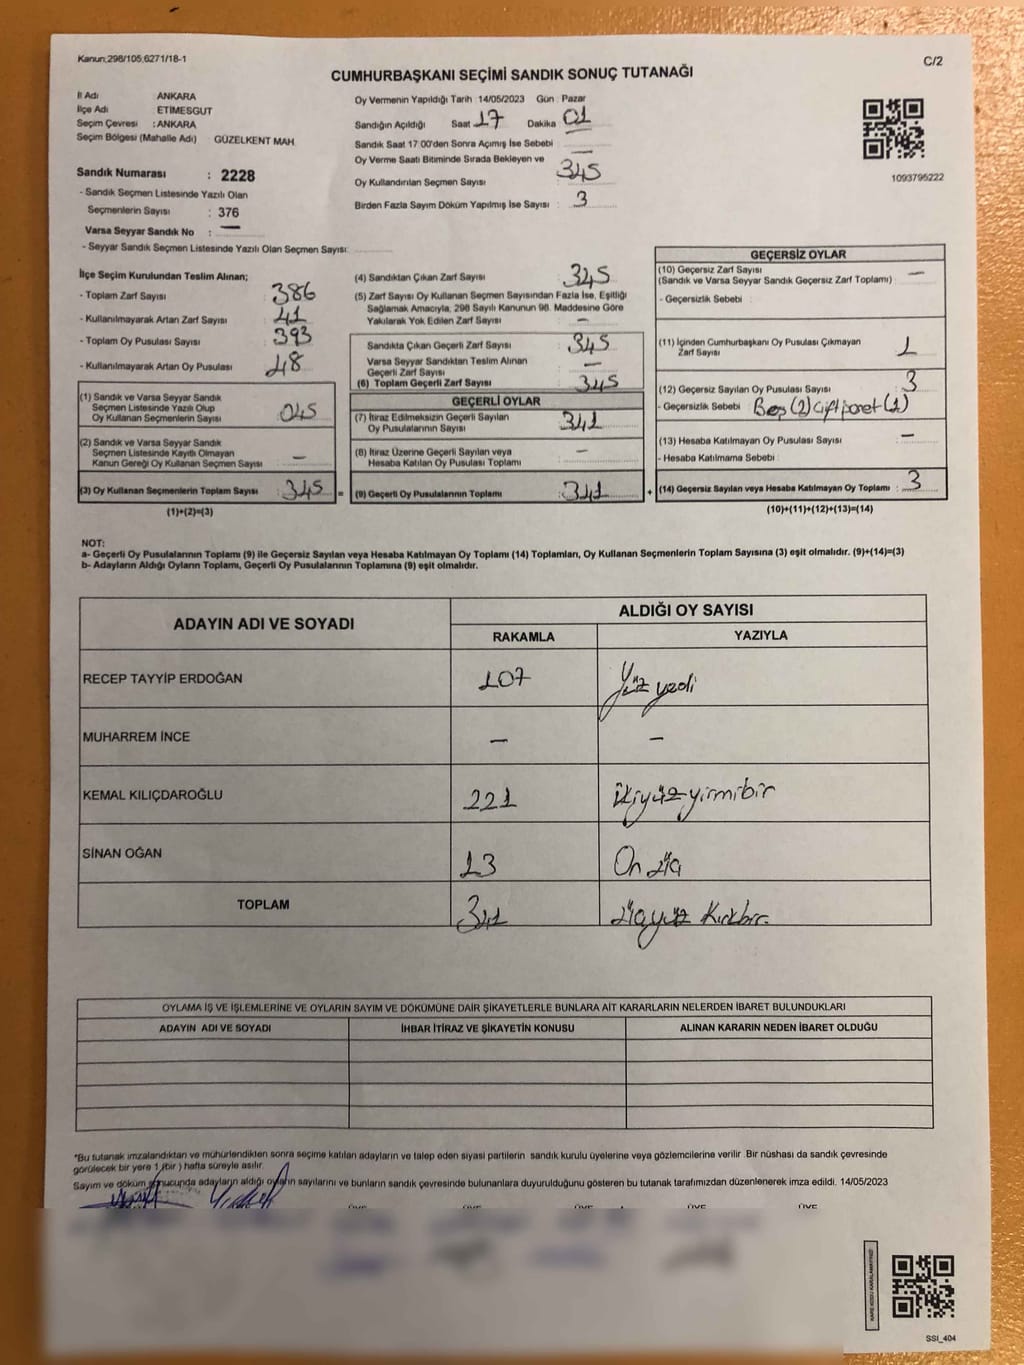 Kanun:298/105,6271/18-1
C/2
CUMHURBAŞKANI SEÇİMİ SANDIK SONUÇ TUTANAĞI
İl Adı ANKARA
İlçe Adı ETİMESGUT
Seçim Çevresi : ANKARA
Seçim Bölgesi (Mahalle Adı) GÜZELKENT MAH.
Sandık Numarası : 2228
- Sandık Seçmen Listesinde Yazılı Olan
Seçmenlerin Sayısı : 376
Varsa Seyyar Sandık No : —
- Seyyar Sandık Seçmen Listesinde Yazılı Olan Seçmen Sayısı:
Oy Vermenin Yapıldığı Tarih 14/05/2023 Gün : Pazar
Sandığın Açıldığı Saat 17 Dakika 01
Sandık Saat 17:00'den Sonra Açımış İse Sebebi : —
Oy Verme Saati Bitiminde Sırada Bekleyen ve
Oy Kullandırılan Seçmen Sayısı : 345
Birden Fazla Sayım Döküm Yapılmış İse Sayısı : 3
1093795222
İlçe Seçim Kurulundan Teslim Alınan;
- Toplam Zarf Sayısı : 386
- Kullanılmayarak Artan Zarf Sayısı : 41
- Toplam Oy Pusulası Sayısı : 393
- Kullanılmayarak Artan Oy Pusulası : 48
(1) Sandık ve Varsa Seyyar Sandık
Seçmen Listesinde Yazılı Olup
Oy Kullanan Seçmenlerin Sayısı : 045
(2) Sandık ve Varsa Seyyar Sandık
Seçmen Listesinde Kayıtlı Olmayan
Kanun Gereği Oy Kullanan Seçmen Sayısı : —
(3) Oy Kullanan Seçmenlerin Toplam Sayısı : 345 =
(1)+(2)=(3)
(4) Sandıktan Çıkan Zarf Sayısı : 345
(5) Zarf Sayısı Oy Kullanan Seçmen Sayısından Fazla İse, Eşitliği
Sağlamak Amacıyla, 298 Sayılı Kanunun 98. Maddesine Göre
Yakılarak Yok Edilen Zarf Sayısı : —
Sandıkta Çıkan Geçerli Zarf Sayısı : 345
Varsa Seyyar Sandıktan Teslim Alınan
Geçerli Zarf Sayısı : —
(6) Toplam Geçerli Zarf Sayısı : 345
GEÇERLİ OYLAR
(7) İtiraz Edilmeksizin Geçerli Sayılan
Oy Pusulalarının Sayısı : 341
(8) İtiraz Üzerine Geçerli Sayılan veya
Hesaba Katılan Oy Pusulası Toplamı : —
(9) Geçerli Oy Pusulalarının Toplamı : 341 +
GEÇERSİZ OYLAR
(10) Geçersiz Zarf Sayısı
(Sandık ve Varsa Seyyar Sandık Geçersiz Zarf Toplamı) : —
- Geçersizlik Sebebi :
(11) İçinden Cumhurbaşkanı Oy Pusulası Çıkmayan
Zarf Sayısı : 1
(12) Geçersiz Sayılan Oy Pusulası Sayısı : 3
- Geçersizlik Sebebi : Boş (2) Çift (1)
(13) Hesaba Katılmayan Oy Pusulası Sayısı : —
- Hesaba Katılmama Sebebi :
(14) Geçersiz Sayılan veya Hesaba Katılmayan Oy Toplamı : 3
(10)+(11)+(12)+(13)=(14)
NOT:
a- Geçerli Oy Pusulalarının Toplamı (9) ile Geçersiz Sayılan veya Hesaba Katılmayan Oy Toplamı (14) Toplamları, Oy Kullanan Seçmenlerin Toplam Sayısına (3) eşit olmalıdır. (9)+(14)=(3)
b- Adayların Aldığı Oyların Toplamı, Geçerli Oy Pusulalarının Toplamına (9) eşit olmalıdır.
ADAYIN ADI VE SOYADI
ALDIĞI OY SAYISI
RAKAMLA YAZIYLA
RECEP TAYYİP ERDOĞAN 107 Yüz yedi
MUHARREM İNCE — —
KEMAL KILIÇDAROĞLU 221 İkiyüz yirmibir
SİNAN OĞAN 13 On üç
TOPLAM 341 Üçyüz Kırkbir
OYLAMA İŞ VE İŞLEMLERİNE VE OYLARIN SAYIM VE DÖKÜMÜNE DAİR ŞİKAYETLERLE BUNLARA AİT KARARLARIN NELERDEN İBARET BULUNDUKLARI
ADAYIN ADI VE SOYADI İHBAR İTİRAZ VE ŞİKAYETİN KONUSU ALINAN KARARIN NEDEN İBARET OLDUĞU
*Bu tutanak imzalandıktan ve mühürlendikten sonra seçime katılan adayların ve talep eden siyasi partilerin sandık kurulu üyelerine veya gözlemcilerine verilir. Bir nüshası da sandık çevresinde
görülecek bir yere 1 (bir) hafta süreyle asılır.
Sayım ve döküm sonucunda adayların aldığı oyların sayılarını ve bunların sandık çevresinde bulunanlara duyurulduğunu gösteren bu tutanak tarafımızdan düzenlenerek imza edildi. 14/05/2023
ÜYE ÜYE ÜYE ÜYE ÜYE
KARE KODU KARALAMAYINIZ!
SSI_404